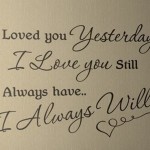 Loved you Yesterday
I Love you Still
Always have..
I Always Will